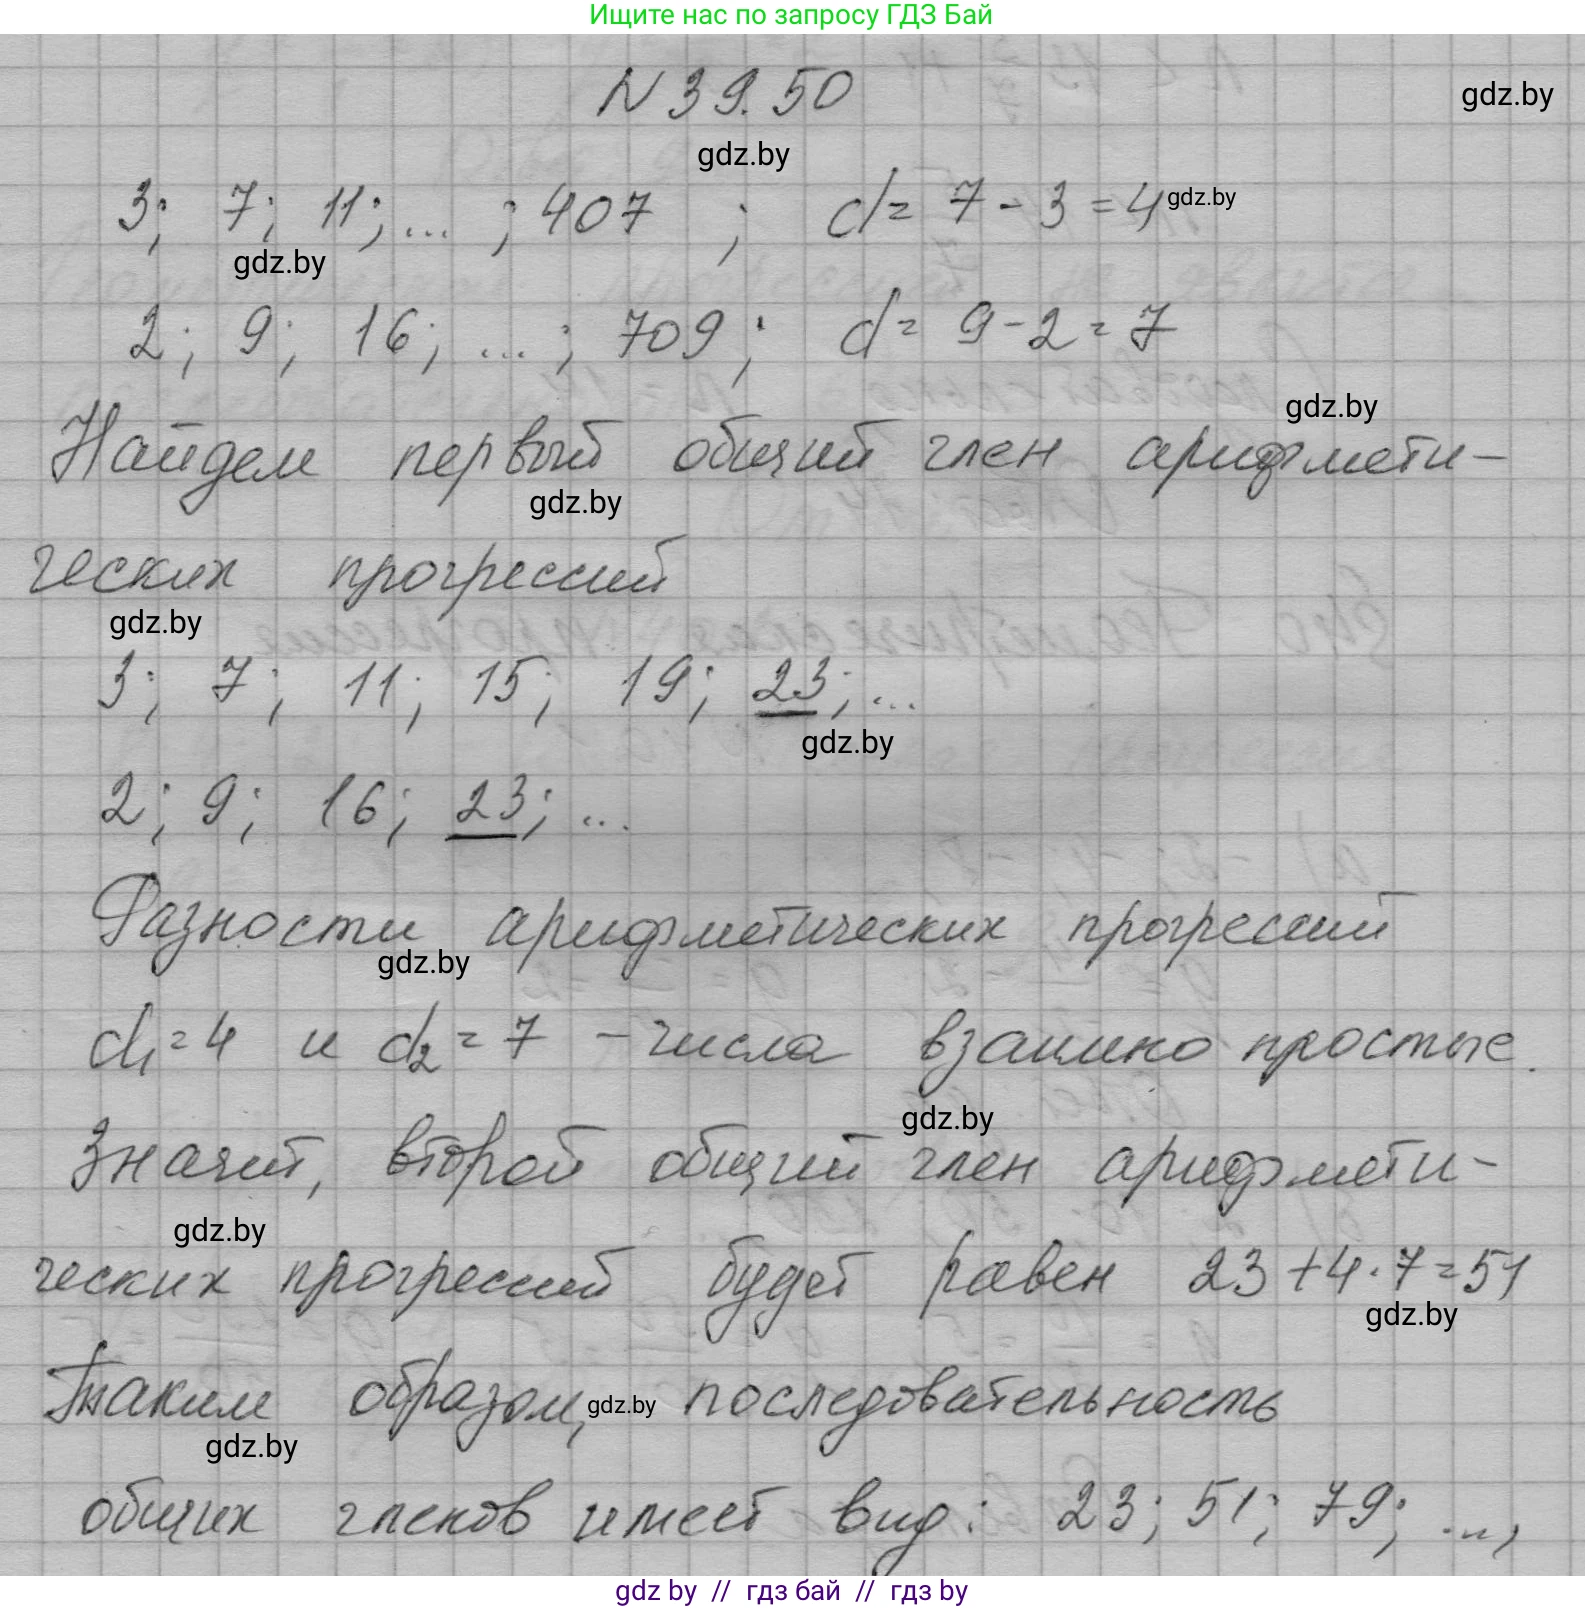 Ищите нас по запросу ГДЗ Бай
N 39.50
gdz.by
gdz.by
3; 7; 11; ... ; 407 ; d = 7 - 3 = 4
gdz.by
gdz.by
2; 9; 16; ... ; 709; d = 9 - 2 = 7
gdz.by
Найдем первый общий член арифмети-
gdz.by
ческих прогрессий
gdz.by
3; 7; 11; 15; 19; 23; ...
gdz.by
2; 9; 16; 23; ...
Разности арифметических прогрессий
gdz.by
d1 = 4 и d2 = 7 - числа взаимно простые.
gdz.by
Значит, второй общий член арифмети-
gdz.by
ческих прогрессий будет равен 23 + 4 · 7 = 51
gdz.by
Таким образом, последовательность
gdz.by
gdz.by
общих членов имеет вид: 23; 51; 79; ...,
gdz by // гдз бай // gdz by